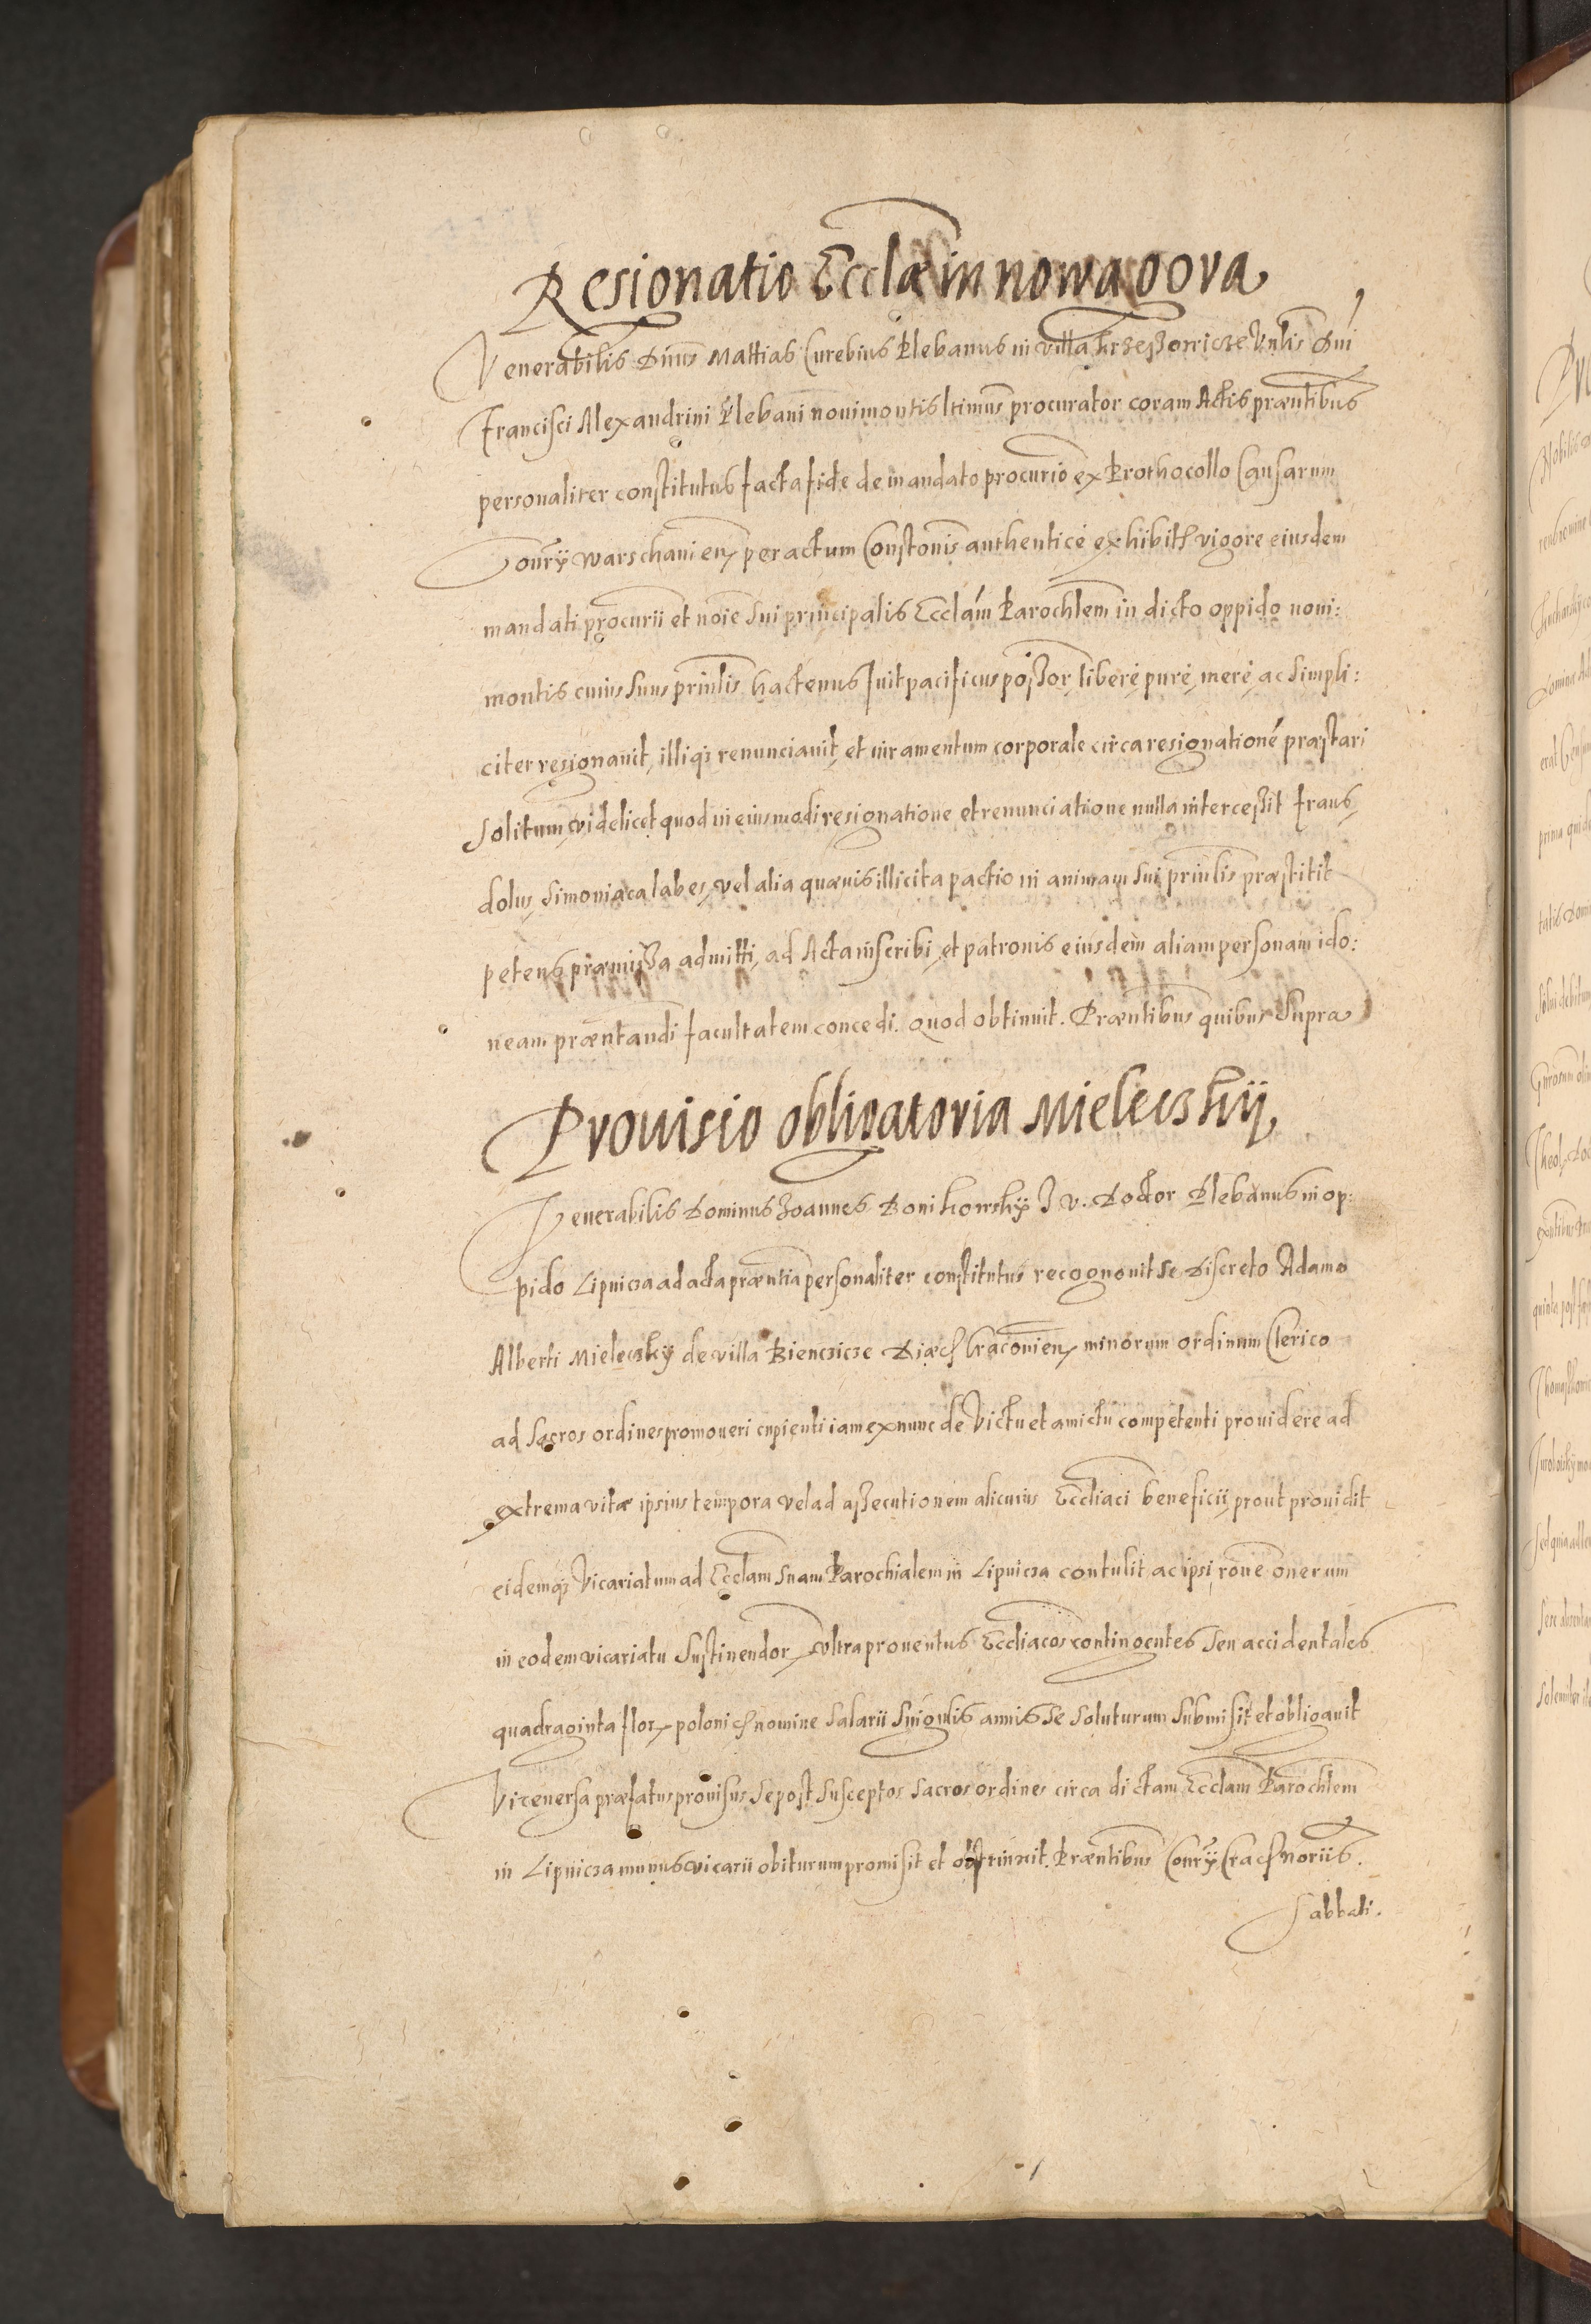 Resignatio Eccłæ in nowa gora
Venerabilis Dnus Mattias Curebius Plebanus in villa krzeßowicze Vnlis Dni
Francisci Alexandrini Plebani nouimontis ltimus procurator coram Actis præntibus
personaliter constitutus facta fide de mandato procurio ex Prothocollo Causarum
Conrÿ warschauien, per actum Constonis authentice exhibit vigore eiusdem
mandati procurii et noie sui principalis Ecclam Parochlem in dicto oppido noui:
montis cuius suus prinlis hactenus fuit pacificus poßor, liberè purè, merè, ac simpli:
citer resignauit, illiq; renunciauit, et iuramentum corporale circa resignationé præstari
solitum, videlicet quod in eiusmodi resignatione et renunciatione nulla interceßit fraus,
dolus, simoniaca labes, vel alia quæuis illicita pactio in animam sui prinlis præstitit
petens præmißa admitti, ad Acta inscribi, et patronis eiusdem aliam personam ido:
neam præntandi facultatem concedi. Quod obtinuit. Præntibus quibus supra
Prouisio obligatoria Mieleczkÿ,
Venerabilis Dominus Joannes Bonikowskÿ J V. Doctor Plebanus in op:
pido Lipnicza ad acta præntia personaliter constitutus recognouit se discreto Adamo
Alberti Mieleczkÿ de villa Bienczicze Diæc Cracouien, minorum ordinum Clerico
ad sacros ordines promoueri cupienti iam ex nunc de victu et amictu competenti prouidere ad
extrema vitæ ipsius tempora vel ad aßecutionem alicuius Eccliaci beneficii, prout prouidit
eidemq; Vicariatum ad Ecclam suam Parochialem in Lipnicza contulit ac ipsi, rone onerum
in eodem vicariatu sustinendor, vltra prouentus Eccliacos contingentes seu accidentales
quadraginta flor, polonic nomine salarii singulis annis se soluturum submisit et obligauit
Vice versa præfatus prouisus se post susceptos sacros ordines circa dictam Ecclam Parochlem
in Lipnicza munus vicarii obiturum promisit et obstrinxit. Præntibus Conrÿ Crac noriis.
Sabbati.